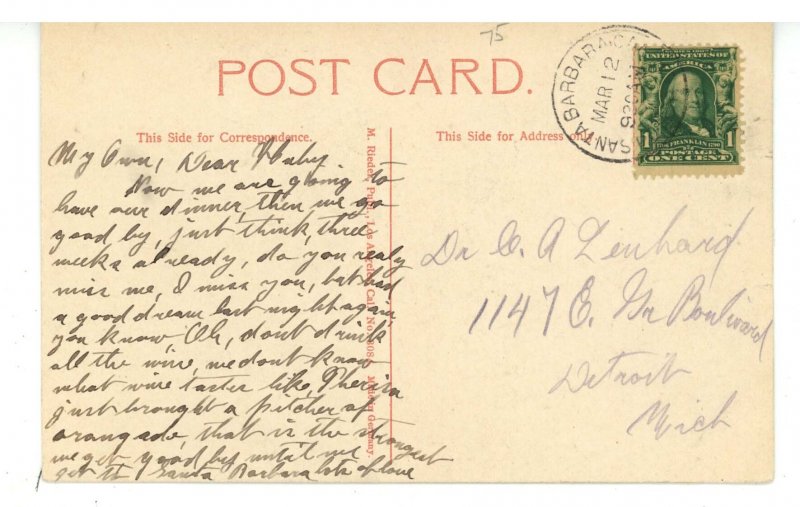 75
POST CARD.
This Side for Correspondence.
This Side for Address only.
SANTA BARBARA, CAL.
MAR 12
9 20 AM
UNITED STATES OF
AMERICA
1 FRANKLIN 1790 1
POSTAGE
ONE CENT
M. Rieder, Publ., Los Angeles, Cal. No. Made in Germany.
My Own, Dear Huby.
Now we are going to
have our dinner, then we go
good by, just think, three
weeks already, do you realy
miss me, I miss you, but had
a good dream last night again,
you know, Oh, dont drink
all the wine, we dont know
what wine tastes like,
just brought a pitcher of
orangade, that is the strongest
we get good by until we
get to Santa Barbara lots of love
Dr C. A Lenhard
1147 E. Gr Boulivard
Detroit
Mich